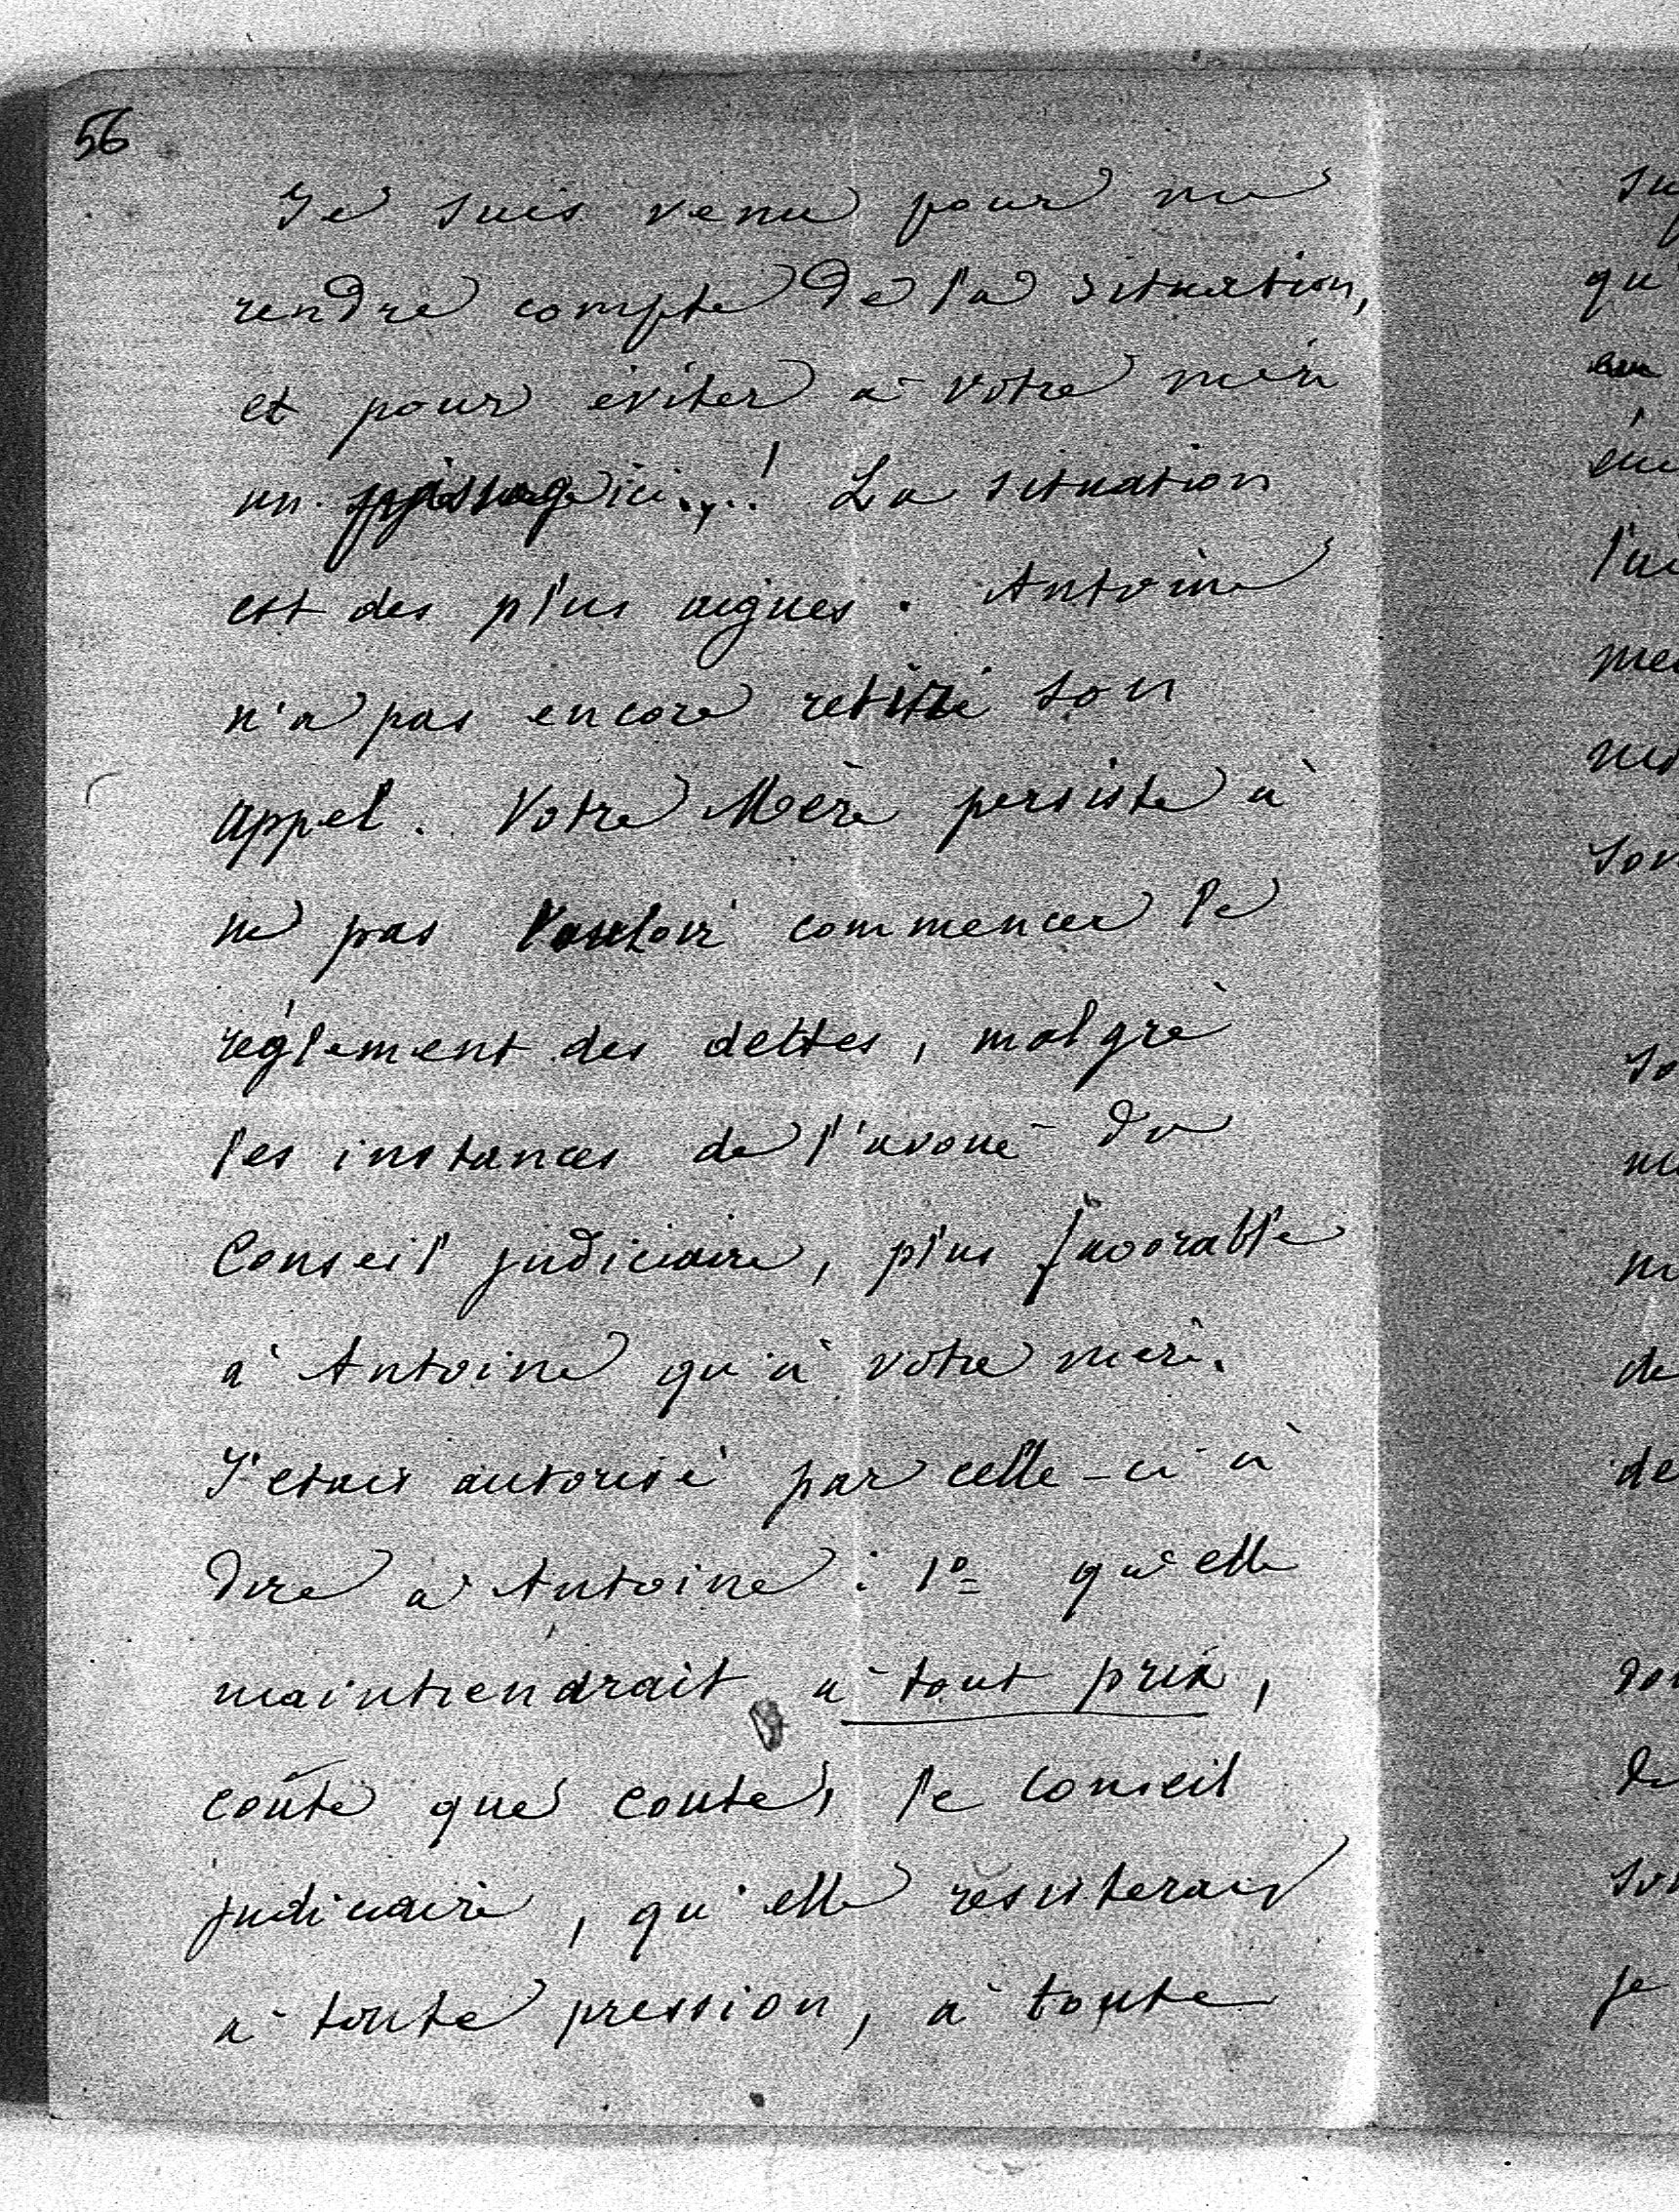 56
Je suis venu pour me
rendre compte de la situation,
et pour éviter à votre mère
un passage ici....! La situation
est des plus aigues. Antoine
n'a pas encore retiré son
appel. Votre Mère persiste à
ne pas vouloir commencer le
règlement des dettes, malgré
les instances de l'avoué du
Conseil judiciaire, plus favorable
à Antoine qu'à votre mère.
J'étais autorisé par celle-ci à
dire à Antoine : 1º qu'elle
maintiendrait à tout prix,
coûte que coute, le conseil
judiciaire, qu'elle résisterait
à toute pression, à toute